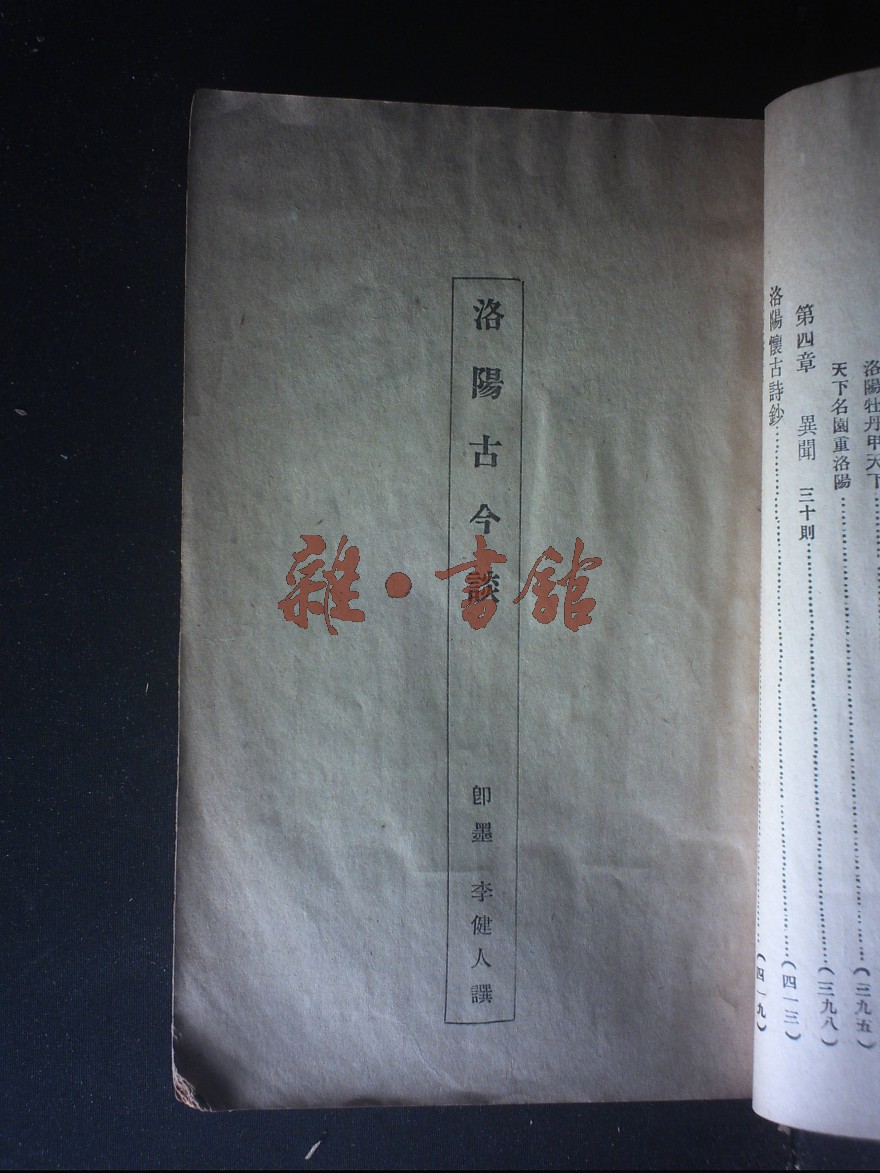 洛陽牡丹甲天下……(三九五)
天下名園重洛陽……(三九八)
第四章 異聞 三十則……(四一三)
洛陽懷古詩鈔……(四一九)
洛陽古今談
即墨 李健人譔
雜·書館